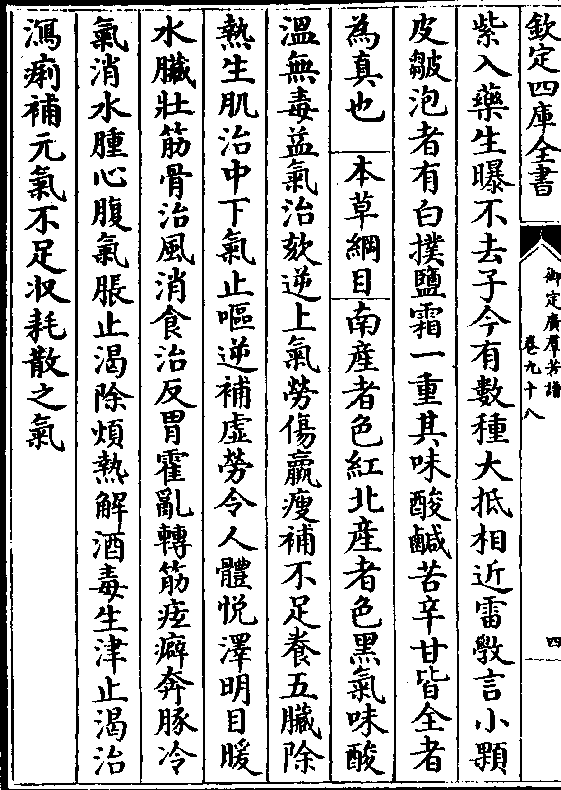 欽定四庫全書
御定廣羣芳譜
卷九十八
四
紫入藥生曝不去子今有數種大抵相近雷斆言小顆
皮皺泡者有白撲鹽霜一重其味酸鹹苦辛甘皆全者
為真也 本草綱目 南産者色紅北産者色黑氣味酸
溫無毒益氣治欬逆上氣勞傷羸瘦補不足養五臟除
熱生肌治中下氣止嘔逆補虛勞令人體悅澤明目暖
水臟壯筋骨治風消食治反胃霍亂轉筋痃癖奔豚冷
氣消水腫心腹氣脹止渴除煩熱解酒毒生津止渴治
瀉痢補元氣不足収耗散之氣